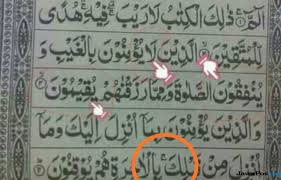 الٓمّٓ ۚ ذٰلِكَ الْكِتٰبُ لَا رَيْبَ ۛ فِيْهِ ۛ هُدًى
لِّلْمُتَّقِيْنَ الَّذِيْنَ لَا يُؤْمِنُوْنَ بِالْغَيْبِ وَ
يُنْفِقُوْنَ الصَّلٰوةَ وَمِمَّا رَزَقْنٰهُمْ يُقِيْمُوْنَ
وَالَّذِيْنَ يُؤْمِنُوْنَ بِمَآ اُنْزِلَ اِلَيْكَ وَمَآ
اُنْزِلَ مِنْ قَبْلِكَ ۚ بِالْاٰخِرَةِ هُمْ يُوْقِنُوْنَ